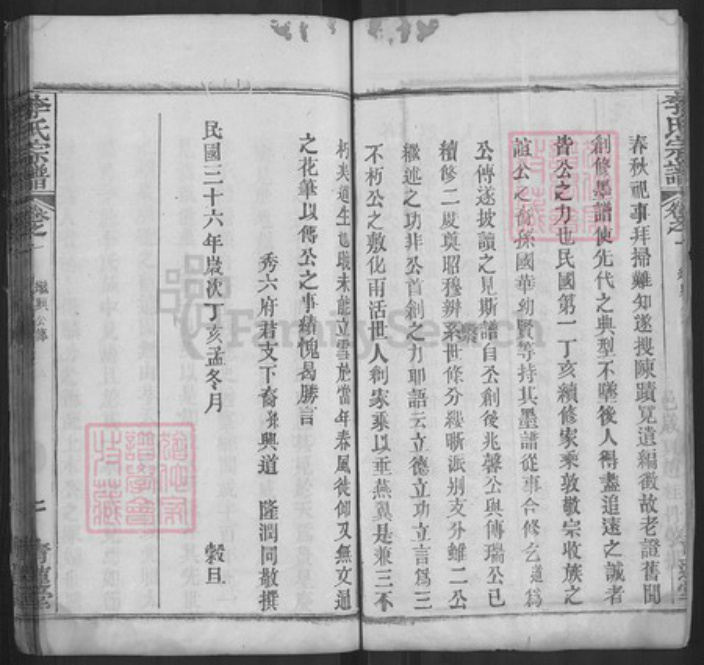 春秋祀事拜掃難知遂搜陳蹟覓遺編徵故老證舊聞
創修墨譜使先代之典型不墜後人得盡追遠之誠者
皆公之力也民國第一丁亥續修家乘敦敬宗收族之
誼公之裔孫國華幼賢等持其墨譜從事合修乞道爲
公傳遂披讀之見斯譜自公創後兆馨公與傳瑞公已
續修二度奠昭穆辨系世條分縷晰派别支分雖二公
繼述之功非公首創之力耶語云立德立功立言爲三
不朽公之敷化雨活世人創家乘以垂燕翼是兼三不
朽矣道生也晚未能立雪於當年春風徒仰又無文通
之花筆以傳公之事績愧曷勝言
秀六府君支下裔孫興道 隆潤同敬撰
民國三十六年歲次丁亥孟冬月 穀旦
李氏宗譜
卷之一
繼興公傳
七
青蓮堂
李氏宗譜
卷之一
FamilySearch